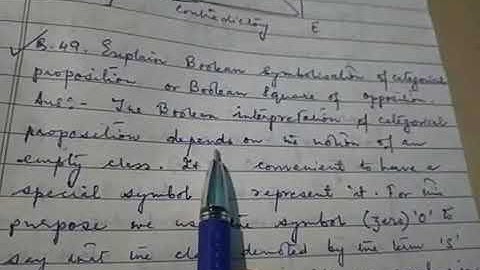 contradictory
E
Q.49. Explain Boolean Symbolisation of categorical
proposition or Boolean Square of opposition.
Ans:- The Boolean interpretation of categorical
proposition depends on the notion of an
empty class. It convenient to have a
special symbol represent it. For the
purpose we use the symbol (zero) 'O' to
say that the class denoted by the term 'S'